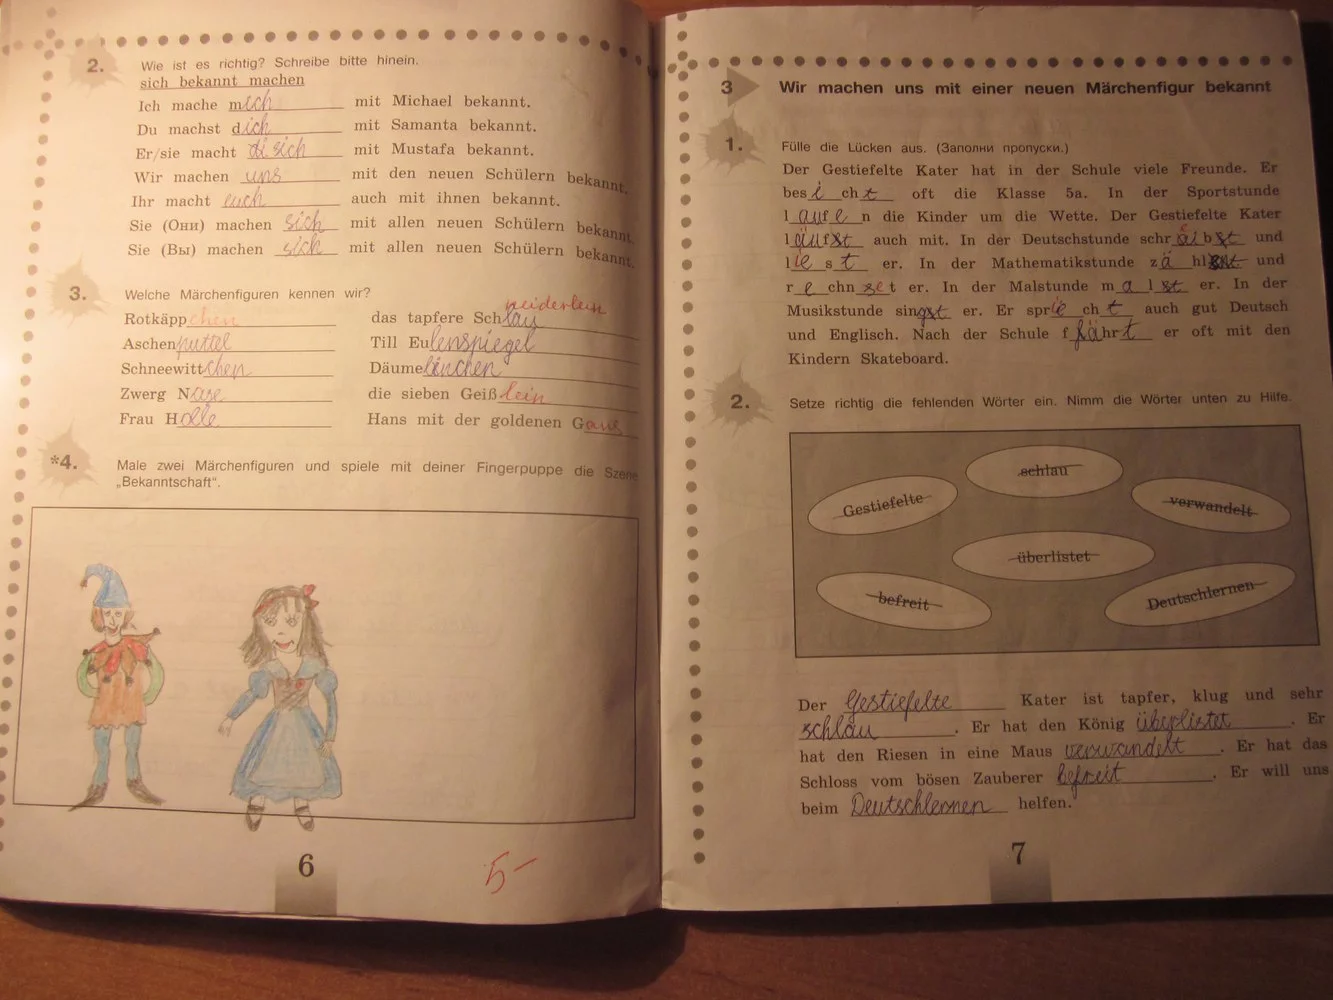 2. Wie ist es richtig? Schreibe bitte hinein.
sich bekannt machen
Ich mache mich mit Michael bekannt.
Du machst dich mit Samanta bekannt.
Er/sie macht di sich mit Mustafa bekannt.
Wir machen uns mit den neuen Schülern bekannt.
Ihr macht euch auch mit ihnen bekannt.
Sie (Они) machen sich mit allen neuen Schülern bekannt.
Sie (Вы) machen sich mit allen neuen Schülern bekannt.
3. Welche Märchenfiguren kennen wir?
neiderlein
Rotkäppchen das tapfere Schlau
Aschenputtel Till Eulenspiegel
Schneewittchen Däumelinchen
Zwerg Nase die sieben Geißlein
Frau Holle Hans mit der goldenen Gans
*4. Male zwei Märchenfiguren und spiele mit deiner Fingerpuppe die Szene
„Bekanntschaft“.
5-
6
3 Wir machen uns mit einer neuen Märchenfigur bekannt
1. Fülle die Lücken aus. (Заполни пропуски.)
Der Gestiefelte Kater hat in der Schule viele Freunde. Er
besicht oft die Klasse 5a. In der Sportstunde
laufen die Kinder um die Wette. Der Gestiefelte Kater
läufst auch mit. In der Deutschstunde schreibst und
liest er. In der Mathematikstunde zählt und
rechnset er. In der Malstunde malst er. In der
Musikstunde singst er. Er spriecht auch gut Deutsch
und Englisch. Nach der Schule fährt er oft mit den
Kindern Skateboard.
2. Setze richtig die fehlenden Wörter ein. Nimm die Wörter unten zu Hilfe.
schlau
Gestiefelte verwandelt
überlistet
befreit Deutschlernen
Der Gestiefelte Kater ist tapfer, klug und sehr
schlau. Er hat den König überlistet. Er
hat den Riesen in eine Maus verwandelt. Er hat das
Schloss vom bösen Zauberer befreit. Er will uns
beim Deutschlernen helfen.
7